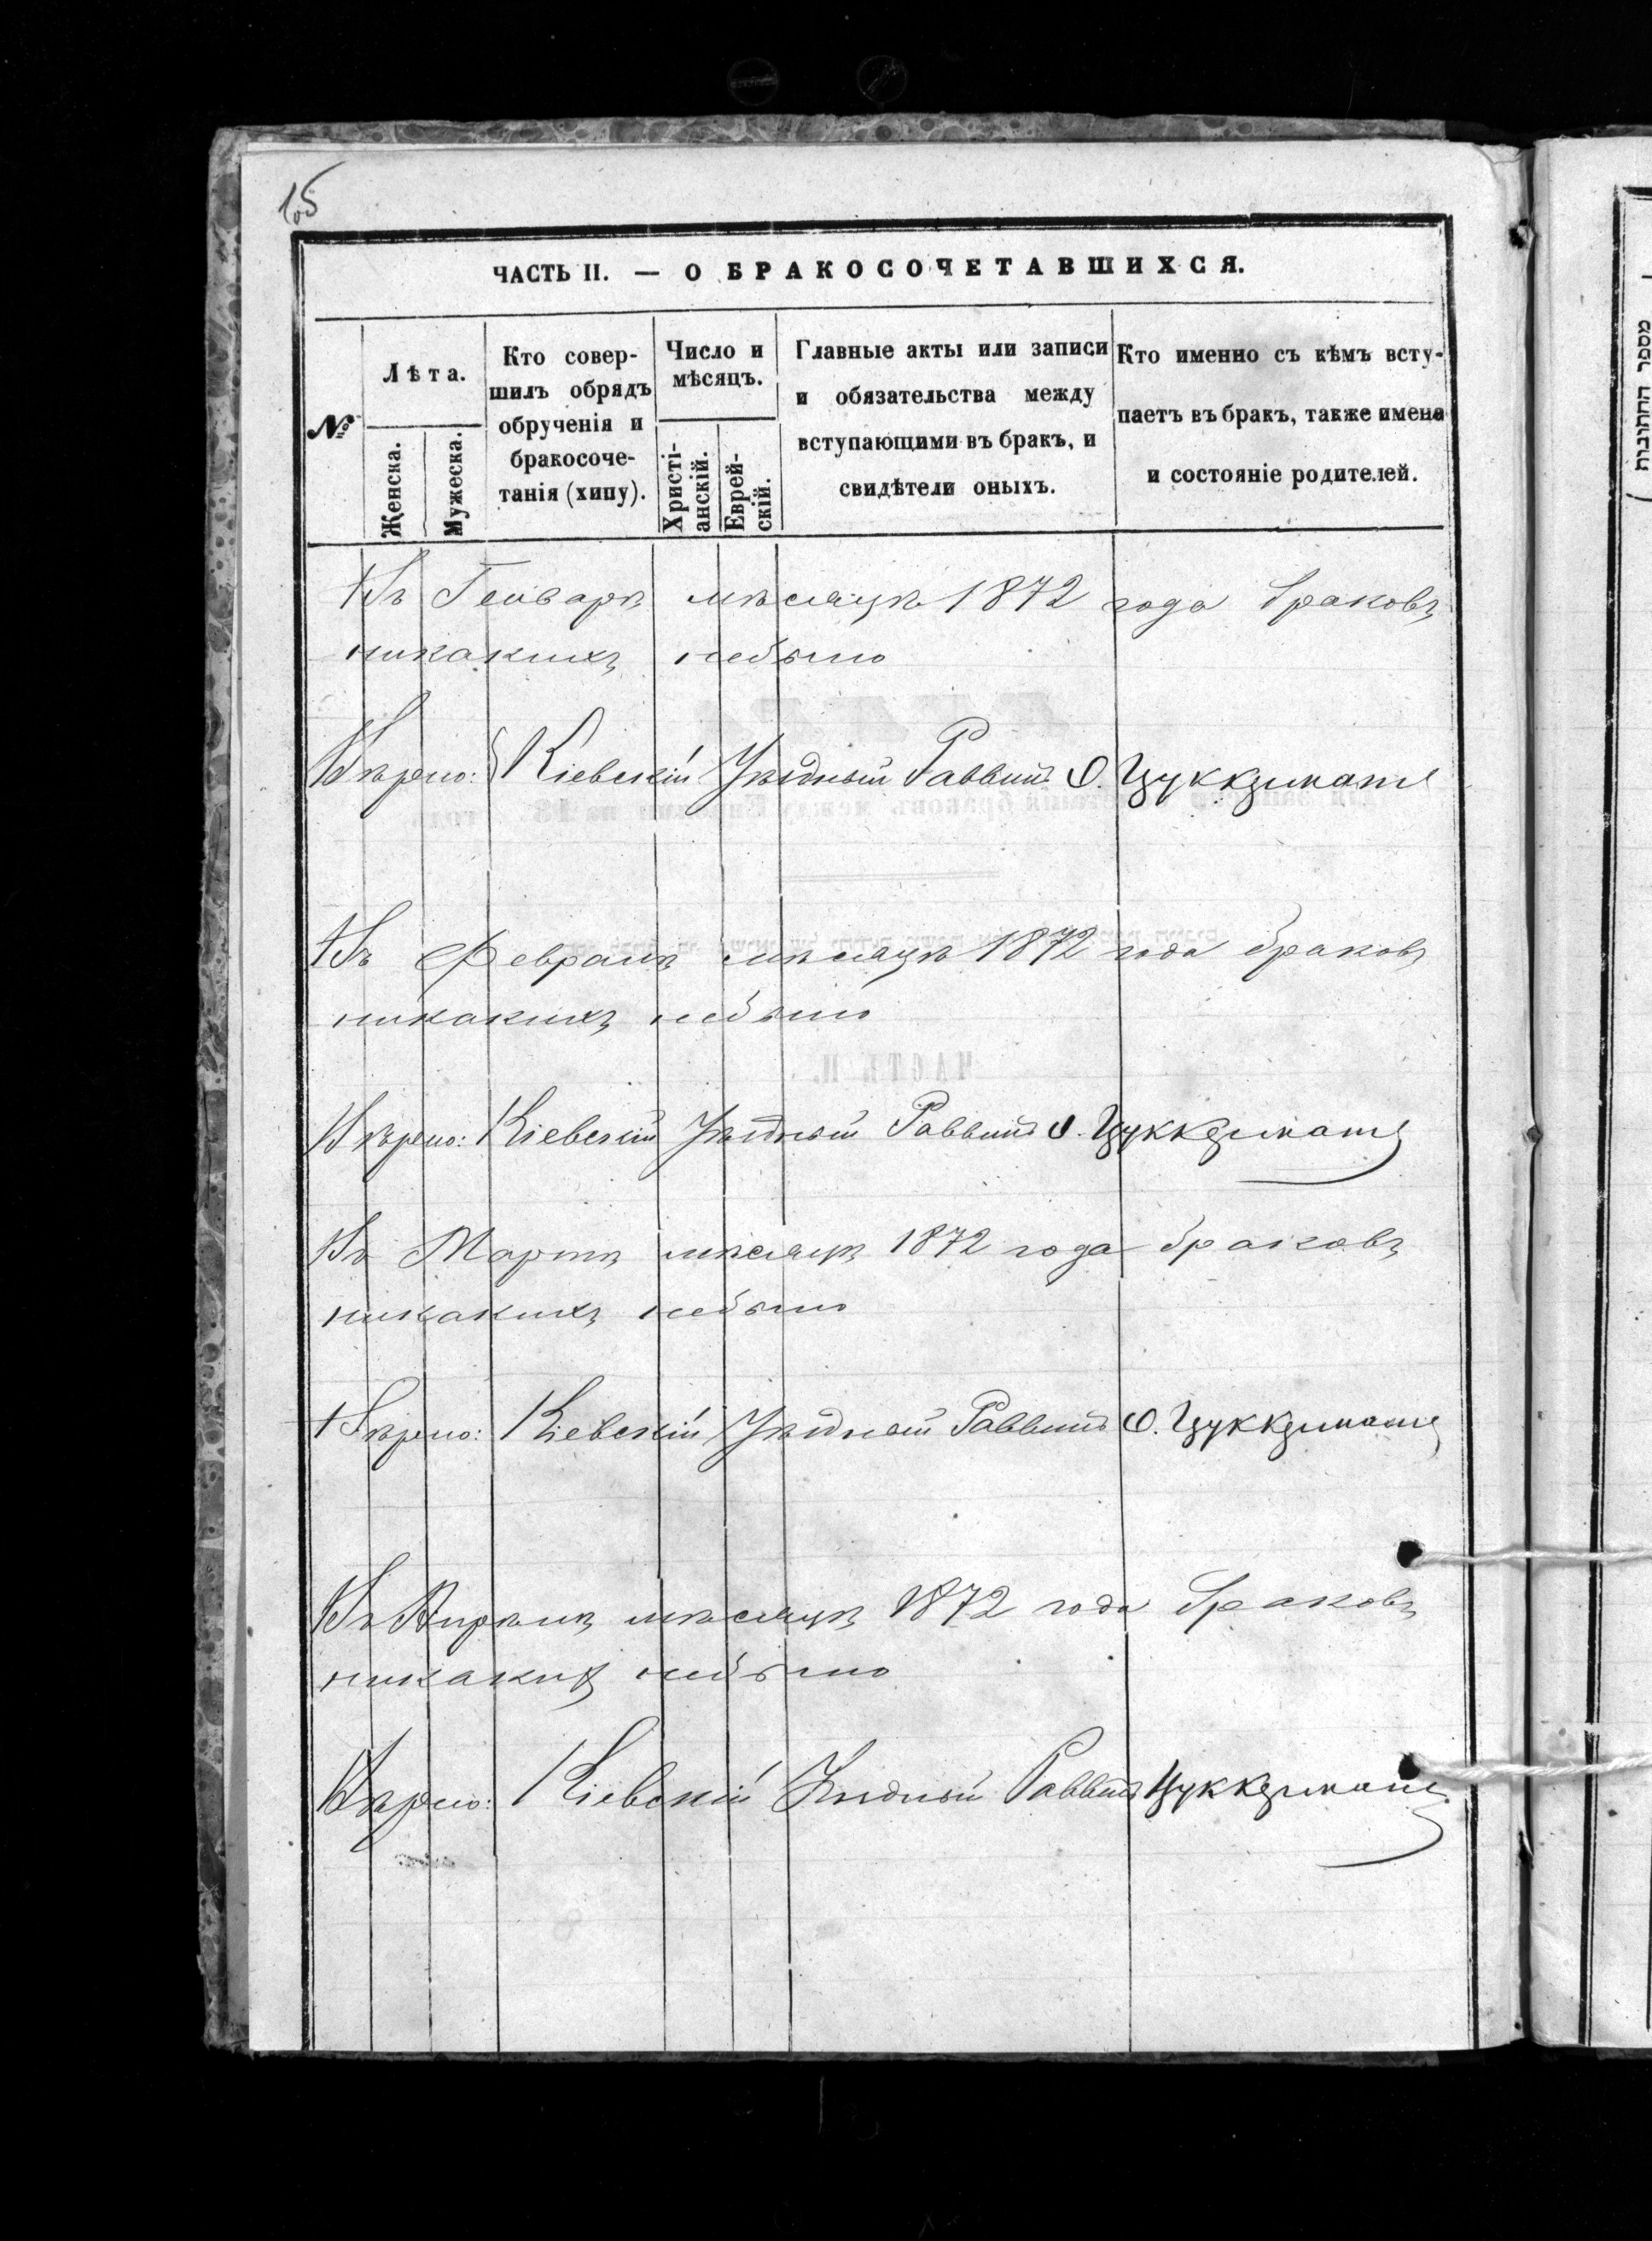 15
ЧАСТЬ II. — О БРАКОСОЧЕТАВШИХСЯ.
№
Лѣта.
Женска.
Мужеска.
Кто совер-
шилъ обрядъ
обрученія и
бракосоче-
танія (хипу).
Число и
мѣсяцъ.
Христі-
анскій.
Еврей-
скій.
Главные акты или записи
и обязательства между
вступающими въ бракъ, и
свидѣтели оныхъ.
Кто именно съ кѣмъ всту-
паетъ въ бракъ, также имена
и состояніе родителей.
Въ Генварѣ мѣсяцѣ 1872 года браковъ
никакихъ небыло
Вѣрно: Кіевскій Уѣздный Раввинъ О. Цуккерманъ
Въ Февралѣ мѣсяцѣ 1872 года браковъ
никакихъ небыло
Вѣрно: Кіевскій Уѣздный Раввинъ О. Цуккерманъ
Въ Мартѣ мѣсяцѣ 1872 года браковъ
никакихъ небыло
Вѣрно: Кіевскій Уѣздный Раввинъ О. Цуккерманъ
Въ Апрѣлѣ мѣсяцѣ 1872 года браковъ
никакихъ небыло
Вѣрно: Кіевскій Уѣздный Раввинъ Цуккерманъ
מספר החתונות